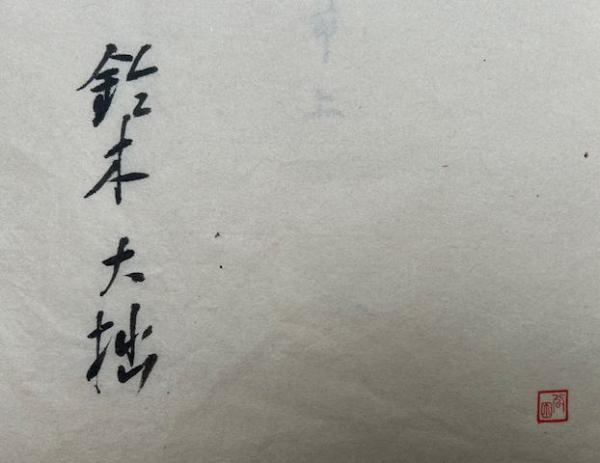 鈴木大拙